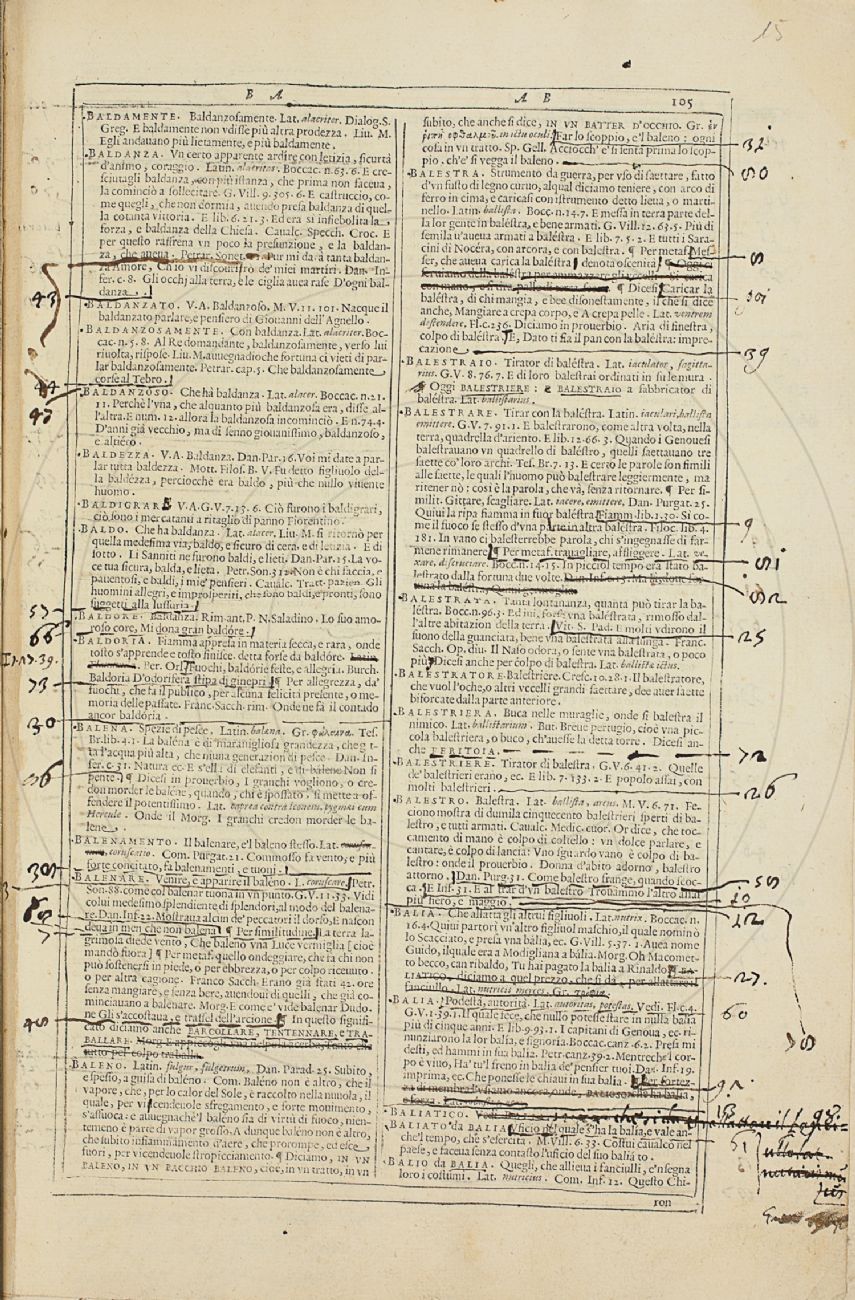 15
B A
A B
105
BALDAMENTE. Baldanzosamente. Lat. alacriter. Dialog. S.
Greg. E baldamente non vdisse più altra prodezza. Liu. M.
Egli andauano più lietamente, e più baldamente.
BALDANZA. Vn certo apparente ardire con letizia, sicurtà
d'animo, coraggio. Latin. alacritas. Boccac. n. 63. 6. E cre-
sciutagli baldanza, con più istanza, che prima non faceua,
la cominciò a sollecitare. G. Vill. 9. 305. 6. E castruccio, co-
me quegli, che non dormia, auendo presa baldanza di quel-
la cotanta vittoria. E lib. 6. 21. 3. Ed era sì infiebolita la
forza, e baldanza della Chiesa. Caualc. Specch. Croc. E
per questo raffrena vn poco la presunzione, e la baldan-
za, che aueua. Petrar. Sonet. Pur mi darà tanta baldan-
za Amore, Ch'io vi discourirò de' miei martiri. Dan. In-
fer. c. 8. Gli occhj alla terra, e le ciglia auea rase D'ogni bal-
danza.
BALDANZATO. V. A. Baldanzoso. M. V. 11. 101. Nacque il
baldanzato parlare, e pensiero di Giouanni dell'Agnello.
BALDANZOSAMENTE. Con baldanza. Lat. alacriter. Boc-
cac. n. 5. 8. Al Re domandante, baldanzosamente, verso lui
riuolta, rispose. Liu. M. auuegnadioche fortuna ci vieti di par-
lar baldanzosamente. Petrar. cap. 5. Che baldanzosamente
corse al Tebro.
BALDANZOSO. Che hà baldanza. Lat. alacer. Boccac. n. 21.
11. Perchè l'vna, che alquanto più baldanzosa era, disse al-
l'altra. E num. 12. allora la baldanzosa incominciò. E n. 74. 4.
D'anni già vecchio, ma di senno giouanissimo, baldanzoso,
e altiero.
BALDEZZA. V. A. Baldanza. Dan. Par. 16. Voi mi date a par-
lar tutta baldezza. Mott. Filos. B. V. Fu detto figliuolo del-
la baldézza, perciocchè era baldo, più che nullo viuente
huomo.
BALDIGRARO. V. A. G. V. 7. 13. 6. Ciò furono i baldigrari,
ciò sono i mercatanti a ritaglio di panno Fiorentino.
BALDO. Che ha baldanza. Lat. alacer. Liu. M. si ritornò per
quella medesima via, baldo, e sicuro di cera, e di letizia. E di
sotto. Li Sanniti ne furono baldi, e lieti. Dan. Par. 15. La vo-
ce tua sicura, balda, e lieta. Petr. Son. 312. Non è chi faccia, e
pauentosi, e baldi, i mie' pensieri. Caualc. Tratt. pazien. Gli
huomini allegri, e improlperiti, che sono baldi, e pronti, sono
suggetti alla lussuria.
BALDORE. Baldanza. Rim. ant. P. N. Saladino. Lo suo amo-
roso core, Mi dona gran baldóre.
BALDORIA. Fiamma appresa in materia secca, e rara, onde
tosto s'apprende e tosto finisce, detta forse da baldóre.
Per. Orl. Fuochi, baldórie feste, e allegria. Burch.
Baldoria D'odorifera stipa di ginepri. ¶ Per allegrezza, da'
fuochi, che fa il publico, per alcuna felicità presente, o me-
moria delle passate. Franc. Sacch. rim. Onde ne fà il contado
ancor baldòria.
BALENA. Spezie di pesce. Latin. balena. Gr. φάλαινα. Tes.
Br. lib. 4. 1. La baléna è di marauigliosa grandezza, che g
ta l'acqua più alta, che niuna generazion di pesce. Dan. In-
fer. c. 31. Natura ec. E s'ell' di elefanti, e di balene Non si
pente. ¶ Dicesi in prouerbio, I granchi vogliono, o cre-
don morder le balene, quando, chi è spossato, si mette a of-
fendere il potentissimo. Lat. caprea contra leonem, pygmæi cum
Hercule. Onde il Morg. I granchi credon morder le ba-
lene.
BALENAMENTO. Il balenare, e'l baleno stesso. Lat.
coruscatio. Com. Purgat. 21. Commosso fa vento, e più
forte concitato, fa balenamenti, e tuoni.
BALENARE. Venire, e apparire il baleno. L. coruscare. Petr.
Son. 88. come col balenar tuona in vn punto. G. V. 11. 33. Vidi
colui medesimo splendiente di splendori, al modo del balena-
re. Dan. Inf. 22. Mostraua alcun de' peccatori il dorso, E nascon
deua in men che non balena. ¶ Per similitudine. La terra la-
grimosa diede vento, Che baleno vna Luce vermiglia [cioè
mandò fuora] ¶ Per metaf. quello ondeggiare, che fa chi non
può sostenersi in piede, o per ebbrezza, o per colpo riceuuto,
o per altra cagione. Franco Sacch. Erano già stati 42. ore
senza mangiare, e senza bere, auendoui di quelli, che già co-
minciauano a balenare. Morg. E come e' vide balenar Dudo-
ne Gli s'accostaua, e trassel dell'arcione. ¶ In questo signifi-
cato diciamo anche BARCOLLARE, TENTENNARE, e TRA-
BALLARE.
BALENO. Latin. fulgur, fulgetrum, Dan. Parad. 25. Subito,
e spesso, a guisa di baléno. Com. Baléno non è altro, che il
vapore, che, per lo calor del Sole, è raccolto nella nuuola, il
quale, per vicendeuole sfregamento, e forte mouimento,
s'affuoca: e auuegnachè 'l baléno sia di virtù di fuoco, nien-
temeno è parte di vapor grosso. A dunque baléno non è altro,
che subito infiammamento d'aere, che prorompe, ed esce
fuori, per vicendeuole stropicciamento. ¶ Diciamo, IN VN
BALENO, IN VN BACCHIO BALENO, cioè, in vn tratto, in vn
subito, che anche si dice, IN VN BATTER D'OCCHIO. Gr. ἐν
ῥιπῇ ὀφθαλμοῦ. in ictu oculi. Far lo scoppio, e'l baleno: ogni
cosa in vn tratto. Sp. Gell. Acciocch' e' si senta prima lo scop-
pio, ch'e' si vegga il baleno.
BALESTRA. Strumento da guerra, per vso di saettare, fatto
d'vn fusto di legno curuo, al qual diciamo teniere, con arco di
ferro in cima, e caricasi con istrumento detto lieua, o marti-
nello. Latin. ballista. Bocc. n. 14. 7. E messa in terra parte del-
la lor gente in balestra, e bene armati. G. Vill. 12. 63. 5. Più di
semila v'aueua armati a baléstra. E lib. 7. 5. 2. E tutti i Sara-
cini di Nocéra, con arcora, e con balestra. ¶ Per metaf. Mes-
ser, che aueua carica la balestra [denota oscenità] ¶ Oggi ci
seruiamo della balestra per ammazzare gli vccelli. Si carica
con mano, e si tire palle di terra secca. ¶ Dicesi Caricar la
baléstra, di chi mangia, e bee disonestamente, il che si dice
anche, Mangiare a crepa corpo, e A crepa pelle. Lat. ventrem
distendere. Fl. c. 236. Diciamo in prouerbio. Aria di finestra,
colpo di baléstra. E, Dato ti sia il pan con la baléstra: impre-
cazione
BALESTRAIO. Tirator di baléstra. Lat. iaculator, sagitta-
rius. G. V. 8. 76. 7. E di loro balestrai ordinati in su le mura.
Oggi BALESTRIERE: e BALESTRAIO a fabbricator di
baléstra. Lat. ballistarius.
BALESTRARE. Tirar con la baléstra. Latin. iaculari, ballista
emittere. G. V. 7. 91. 1. E balestrarono, come altra volta, nella
terra, quadrella d'ariento. E lib. 12. 66. 3. Quando i Genouesi
balestrauano vn quadrello di baléstro, quelli saettauano tre
saette co' loro archi. Tes. Br. 7. 13. E certo le parole son simili
alle saette, le quali l'huomo può balestrare leggiermente, ma
ritener nò: così è la parola, che và, senza ritornare. ¶ Per si-
milit. Gittare, scagliare. Lat. iacere, emittere. Dan. Purgat. 25.
Quiui la ripa fiamma in fuor baléstra. Fiamm. lib. 1. 30. Si co-
me il fuoco se stesso d'vna parte in altra baléstra. Filoc. lib. 4.
181. In vano ci balesterrebbe parola, chi s'ingegnasse di far-
mene rimanere. ¶ Per metaf. trauagliare, affliggere. Lat. ve-
xare, discruciare. Bocc. n. 14. 15. In picciol tempo era stato ba-
lestrato dalla fortuna due volte.
BALESTRATA. Tanta lontananza, quanta può tirar la ba-
léstra. Bocc. n. 96. 3. Ed iui, forse vna balestrata, rimosso dal-
l'altre abitazion della terra. Vit. S. Pad. E molti vdirono il
suono della guanciata, bene vna balestrata alla lunga. Franc.
Sacch. Op. diu. Il Naso odora, o sente vna balestrata, o poco
più. Dicesi anche per colpo di balestra. Lat. ballistæ ictus.
BALESTRATORE. Balestriere. Cresc. 10. 28. 1. Il balestratore,
che vuol l'oche, o altri vccelli grandi saettare, dee auer saette
biforcate dalla parte anteriore.
BALESTRIERA. Buca nelle muraglie, onde si balestra il
nimico. Lat. ballistarium. But. Breue pertugio, cioè vna pic-
cola balestriera, o buco, ch'auesse la detta torre. Dicesi an-
che FERITOIA.
BALESTRIERE. Tirator di balestra. G. V. 6. 41. 2. Quelle
de' balestrieri erano, ec. E lib. 7. 133. 2. E popolo assai, con
molti balestrieri.
BALESTRO. Balestra. Lat. ballista, arcus. M. V. 6. 71. Fe-
ciono mostra di dumila cinquecento balestrieri sperti di ba-
lestro, e tutti armati. Caualc. Medic. cuor. Or dice, che toc-
camento di mano è colpo di coltello: vn dolce parlare, e
cantare, è colpo di lancia: Vno sguardo vano è colpo di ba-
lestro: onde il prouerbio. Donna d'abito adorno, balestro
attorno. Dan. Purg. 31. Come balestro frange, quando scoc-
ca. E Inf. 31. E al trar d'vn balestro Trouammo l'altro assai
più fiero, e maggio.
BALIA. Che allatta gli altrui figliuoli. Lat. nutrix. Boccac. n.
16. 4. Quiui partorì vn'altro figliuol maschio, il quale nominò
lo Scacciato, e presa vna bália, ec. G. Vill. 5. 37. 1. Auea nome
Guido, il quale era a Modigliana a bália. Morg. Oh Macomet-
to becco, can ribaldo, Tu hai pagato la balia a Rinaldo. ¶ BA-
LIATICO, diciamo a quel prezzo, che si dà, per allattare il
fanciullo. Lat. nutricis merces. Gr. τροφεῖα.
BALIA. Podestà, autorità. Lat. autoritas, potestas. Vedi. Fl. c. 4.
G. V. 1. 39. 1. Il quale féce, che nullo potesse stare in nulla balia
più di cinque anni. E lib. 9. 93. 1. I capitani di Genoua, ec. ri-
nunziarono la lor balìa, e signoria. Boccac. canz. 6. 2. Presi mi
desti, ed hammi in sua balia. Petr. canz. 39. 2. Mentrechè 'l cor-
po è viuo, Ha' tu'l freno in balia de' pensier tuoi. Dan. Inf. 19.
imprima, ec. Che ponesse le chiaui in sua balia.
BALIATICO.
BALIATO da BALIA. Vficio del quale s'ha la balìa, e vale an-
che 'l tempo, che s'esercita. M. Vill. 6. 33. Costui caualcò nel
paese, e faceua senza contasto l'uficio del suo baliàto.
BALIO da BALIA. Quegli, che allieua i fanciulli, e'nsegna
loro i costumi. Lat. nutricius. Com. Inf. 12. Questo Chi-
ron
43
44
43
53
66
73
30
36
305
32
50
39
9
51
52
25
72
26
12
27.
60
51